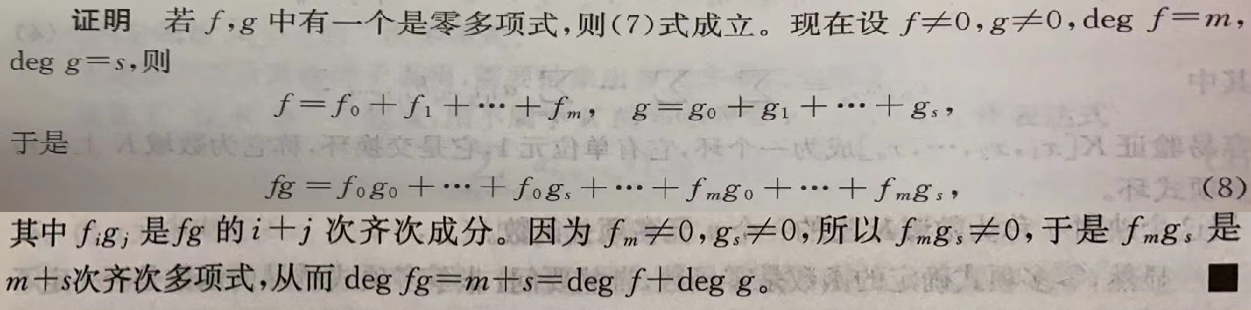 证明 若 f,g 中有一个是零多项式,则(7)式成立。现在设 f≠0,g≠0,deg f=m,
deg g=s,则
f=f₀+f₁+⋯+fₘ, g=g₀+g₁+⋯+gₛ,
于是
fg=f₀g₀+⋯+f₀gₛ+⋯+fₘg₀+⋯+fₘgₛ, (8)
其中 fᵢgⱼ 是fg 的 i+j 次齐次成分。因为 fₘ≠0,gₛ≠0,所以 fₘgₛ≠0,于是 fₘgₛ 是
m+s次齐次多项式,从而 deg fg=m+s=deg f+deg g。 ■